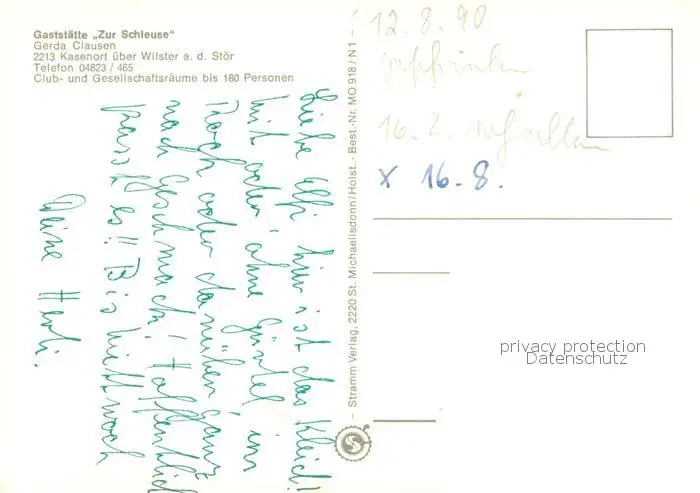 Gaststätte „Zur Schleuse“
Gerda Clausen
2213 Kasenort über Wilster a. d. Stör
Telefon 04823 / 465
Club- und Gesellschaftsräume bis 180 Personen
Liebe Elfi hier ist das Kleid!
Mit oder ohne Gürtel im
Rock oder darüber ganz
nach Geschmack! Hoffentlich
passt es!! Bis Mittwoch
Deine Herti.
– Stramm Verlag, 2220 St. Michaelisdonn/Holst. - Best.-Nr. MO 918 / N 1 –
12.8.90
16.8.
x 16.8.
privacy protection
Datenschutz